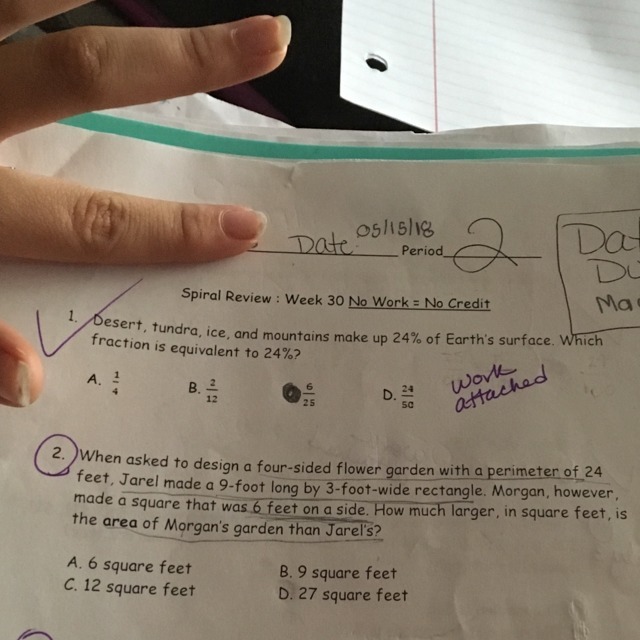 Date 05/15/18 Period 2
Spiral Review : Week 30 No Work = No Credit
1. Desert, tundra, ice, and mountains make up 24% of Earth's surface. Which
fraction is equivalent to 24%?
A. 1/4 B. 2/12 6/25 D. 24/50
work
attached
2. When asked to design a four-sided flower garden with a perimeter of 24
feet, Jarel made a 9-foot long by 3-foot-wide rectangle. Morgan, however,
made a square that was 6 feet on a side. How much larger, in square feet, is
the area of Morgan's garden than Jarel's?
A. 6 square feet B. 9 square feet
C. 12 square feet D. 27 square feet